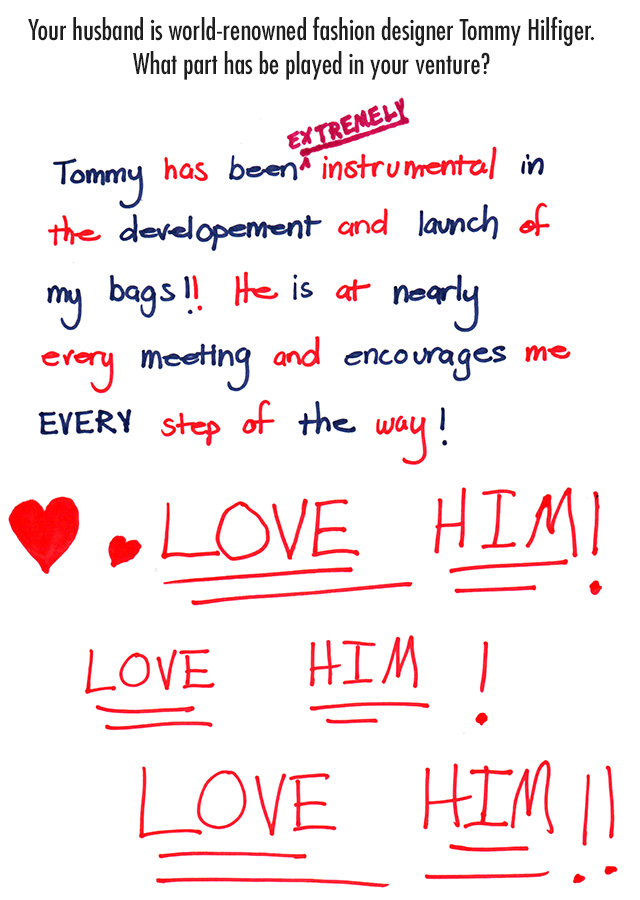 Your husband is world-renowned fashion designer Tommy Hilfiger.
What part has be played in your venture?
EXTREMELY
Tommy has been ^ instrumental in
the developement and launch of
my bags!! He is at nearly
every meeting and encourages me
EVERY step of the way!
LOVE HIM!
LOVE HIM!
LOVE HIM!!